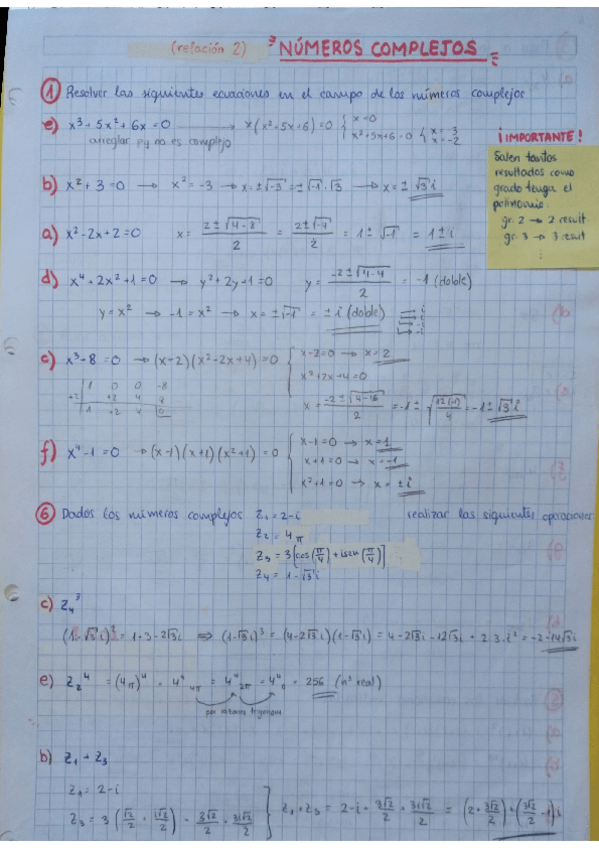 (relación 2) NÚMEROS COMPLEJOS
① Resolver las siguientes ecuaciones en el campo de los números complejos
e) x³+5x²+6x=0 → x(x²+5x+6)=0 { x=0
x²+5x+6=0 { x=-3
x=-2
arreglar pq no es complejo
¡IMPORTANTE!
Salen tantos
resultados como
grado tenga el
polinomio.
gr. 2 → 2 result.
gr. 3 → 3 result
:
b) x²+3=0 → x²=-3 → x=±√-3=±√-1·√3 → x=±√3i
a) x²-2x+2=0 x= (2±√4-8)/2 = (2±√-4)/2 = 1±√-1 = 1±i
d) x⁴+2x²+1=0 → y²+2y+1=0 y= (-2±√4-4)/2 = -1 (doble)
y=x² → -1=x² → x=±√-1 = ±i (doble)
c) x³-8=0 → (x-2)(x²-2x+4)=0 { x-2=0 → x=2
x²+2x+4=0
x= (-2±√4-16)/2 = -1±√(12(-1)/4) = -1±√3i
1 0 0 -8
+2 +2 4 8
1 +2 4 0
f) x⁴-1=0 → (x-1)(x+1)(x²+1)=0 { x-1=0 → x=1
x+1=0 → x=-1
x²+1=0 → x=±i
⑥ Dados los números complejos z₁=2-i realizar las siguientes operaciones
z₂=4π
z₃=3[cos(π/4)+isen(π/4)]
z₄=1-√3i
c) z₄³
(1-√3i)²=1-3-2√3i ⇒ (1-√3i)³=(4-2√3i)(1-√3i)=4-2√3i-12√3i+2·3·i²=-2-14√3i
e) z₂⁴ = (4π)⁴ = 4⁴4π = 4⁴2π = 4⁴0 = 256 (nº real)
por razones trigonom
b) z₁+z₃
z₁=2-i
z₃=3(√2/2+i√2/2)=3√2/2+3i√2/2 } z₁+z₃=2-i+3√2/2+3i√2/2=(2+3√2/2)+(3√2/2-1)i